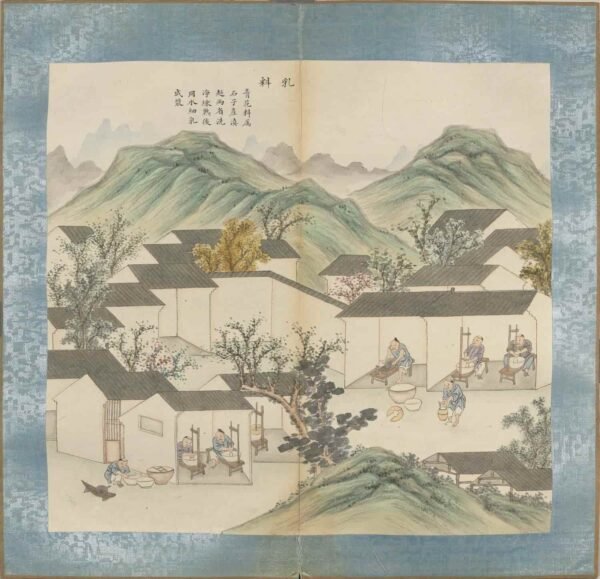 乳料
青花料属
石子產滇
越兩省洗
淨煉熟後
用水細乳
成漿